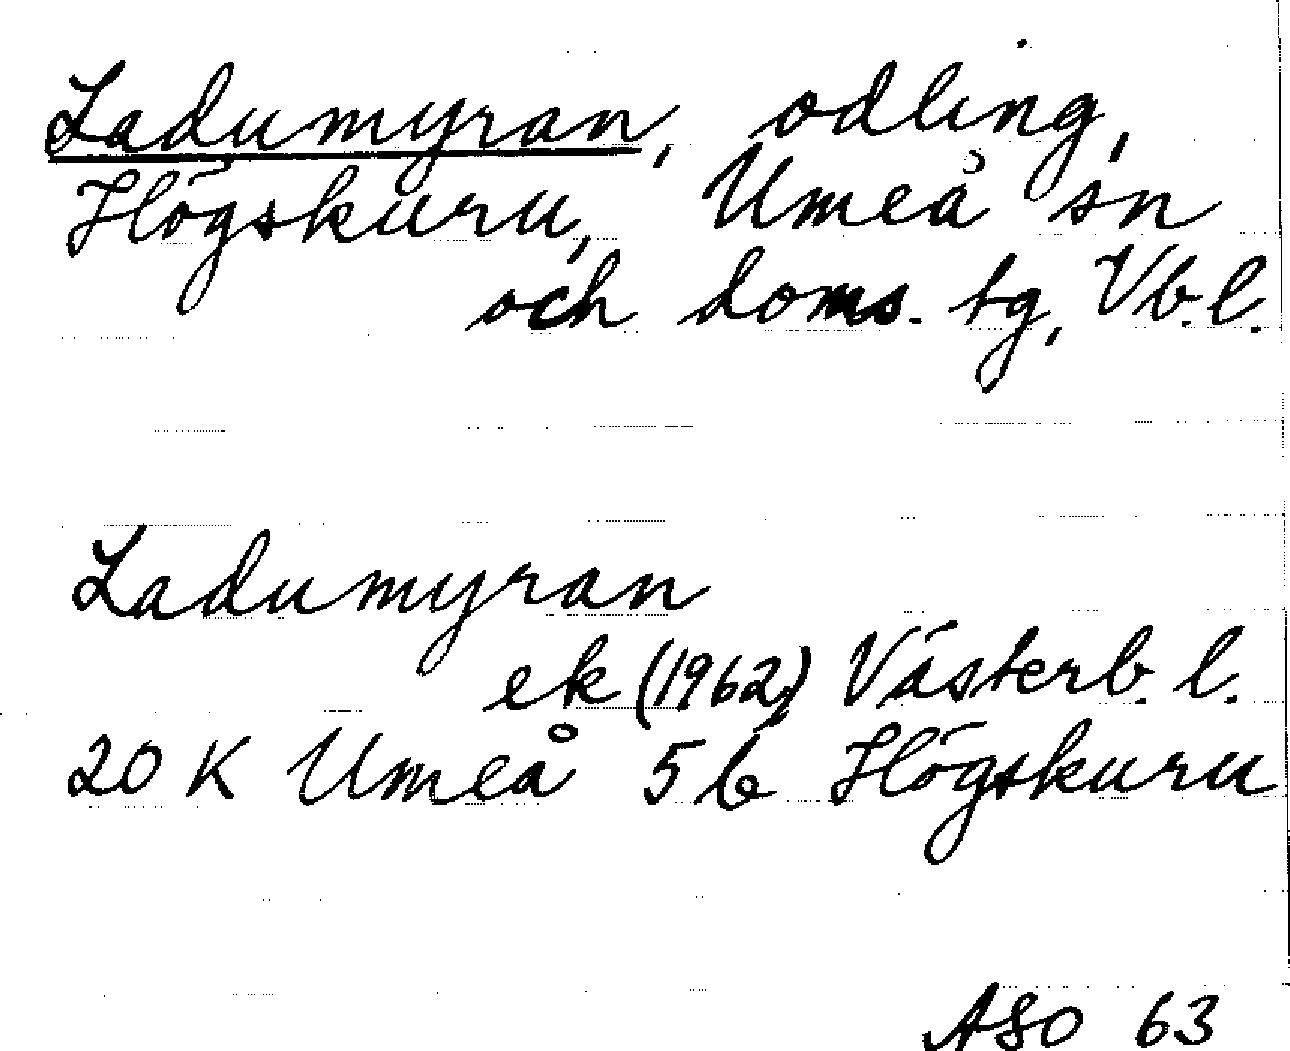 Ladumyran, odling,
Högskuru, Umeå sn
och doms. tg, Vb.l.
Ladumyran
ek (1962) Västerb. l.
20 K Umeå 5 b Högskuru
ASO 63